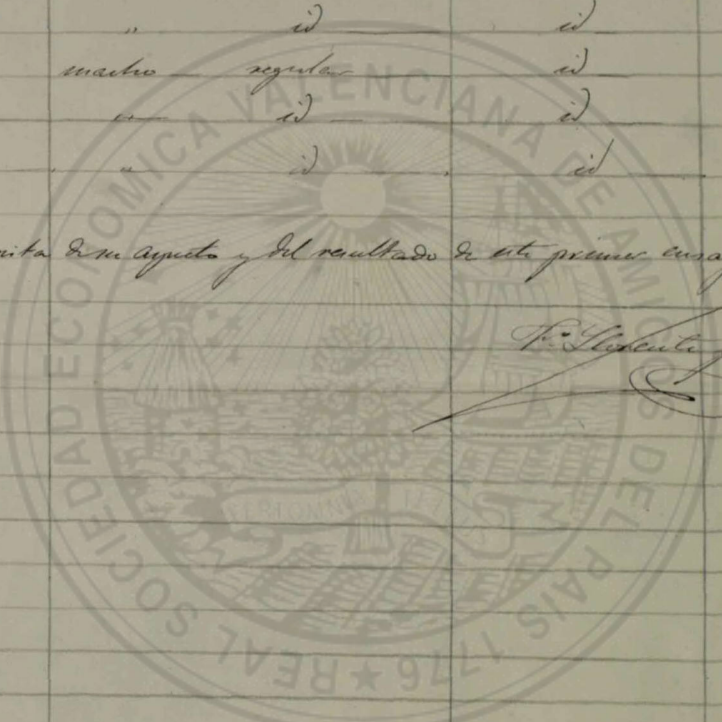 " id id
macho regular id
" id id
" id id
de su aspecto y del resultado de este primer
Llorente
REAL SOCIEDAD ECONOMICA VALENCIANA DE AMIGOS DEL PAIS 1776
FERT OMNIA